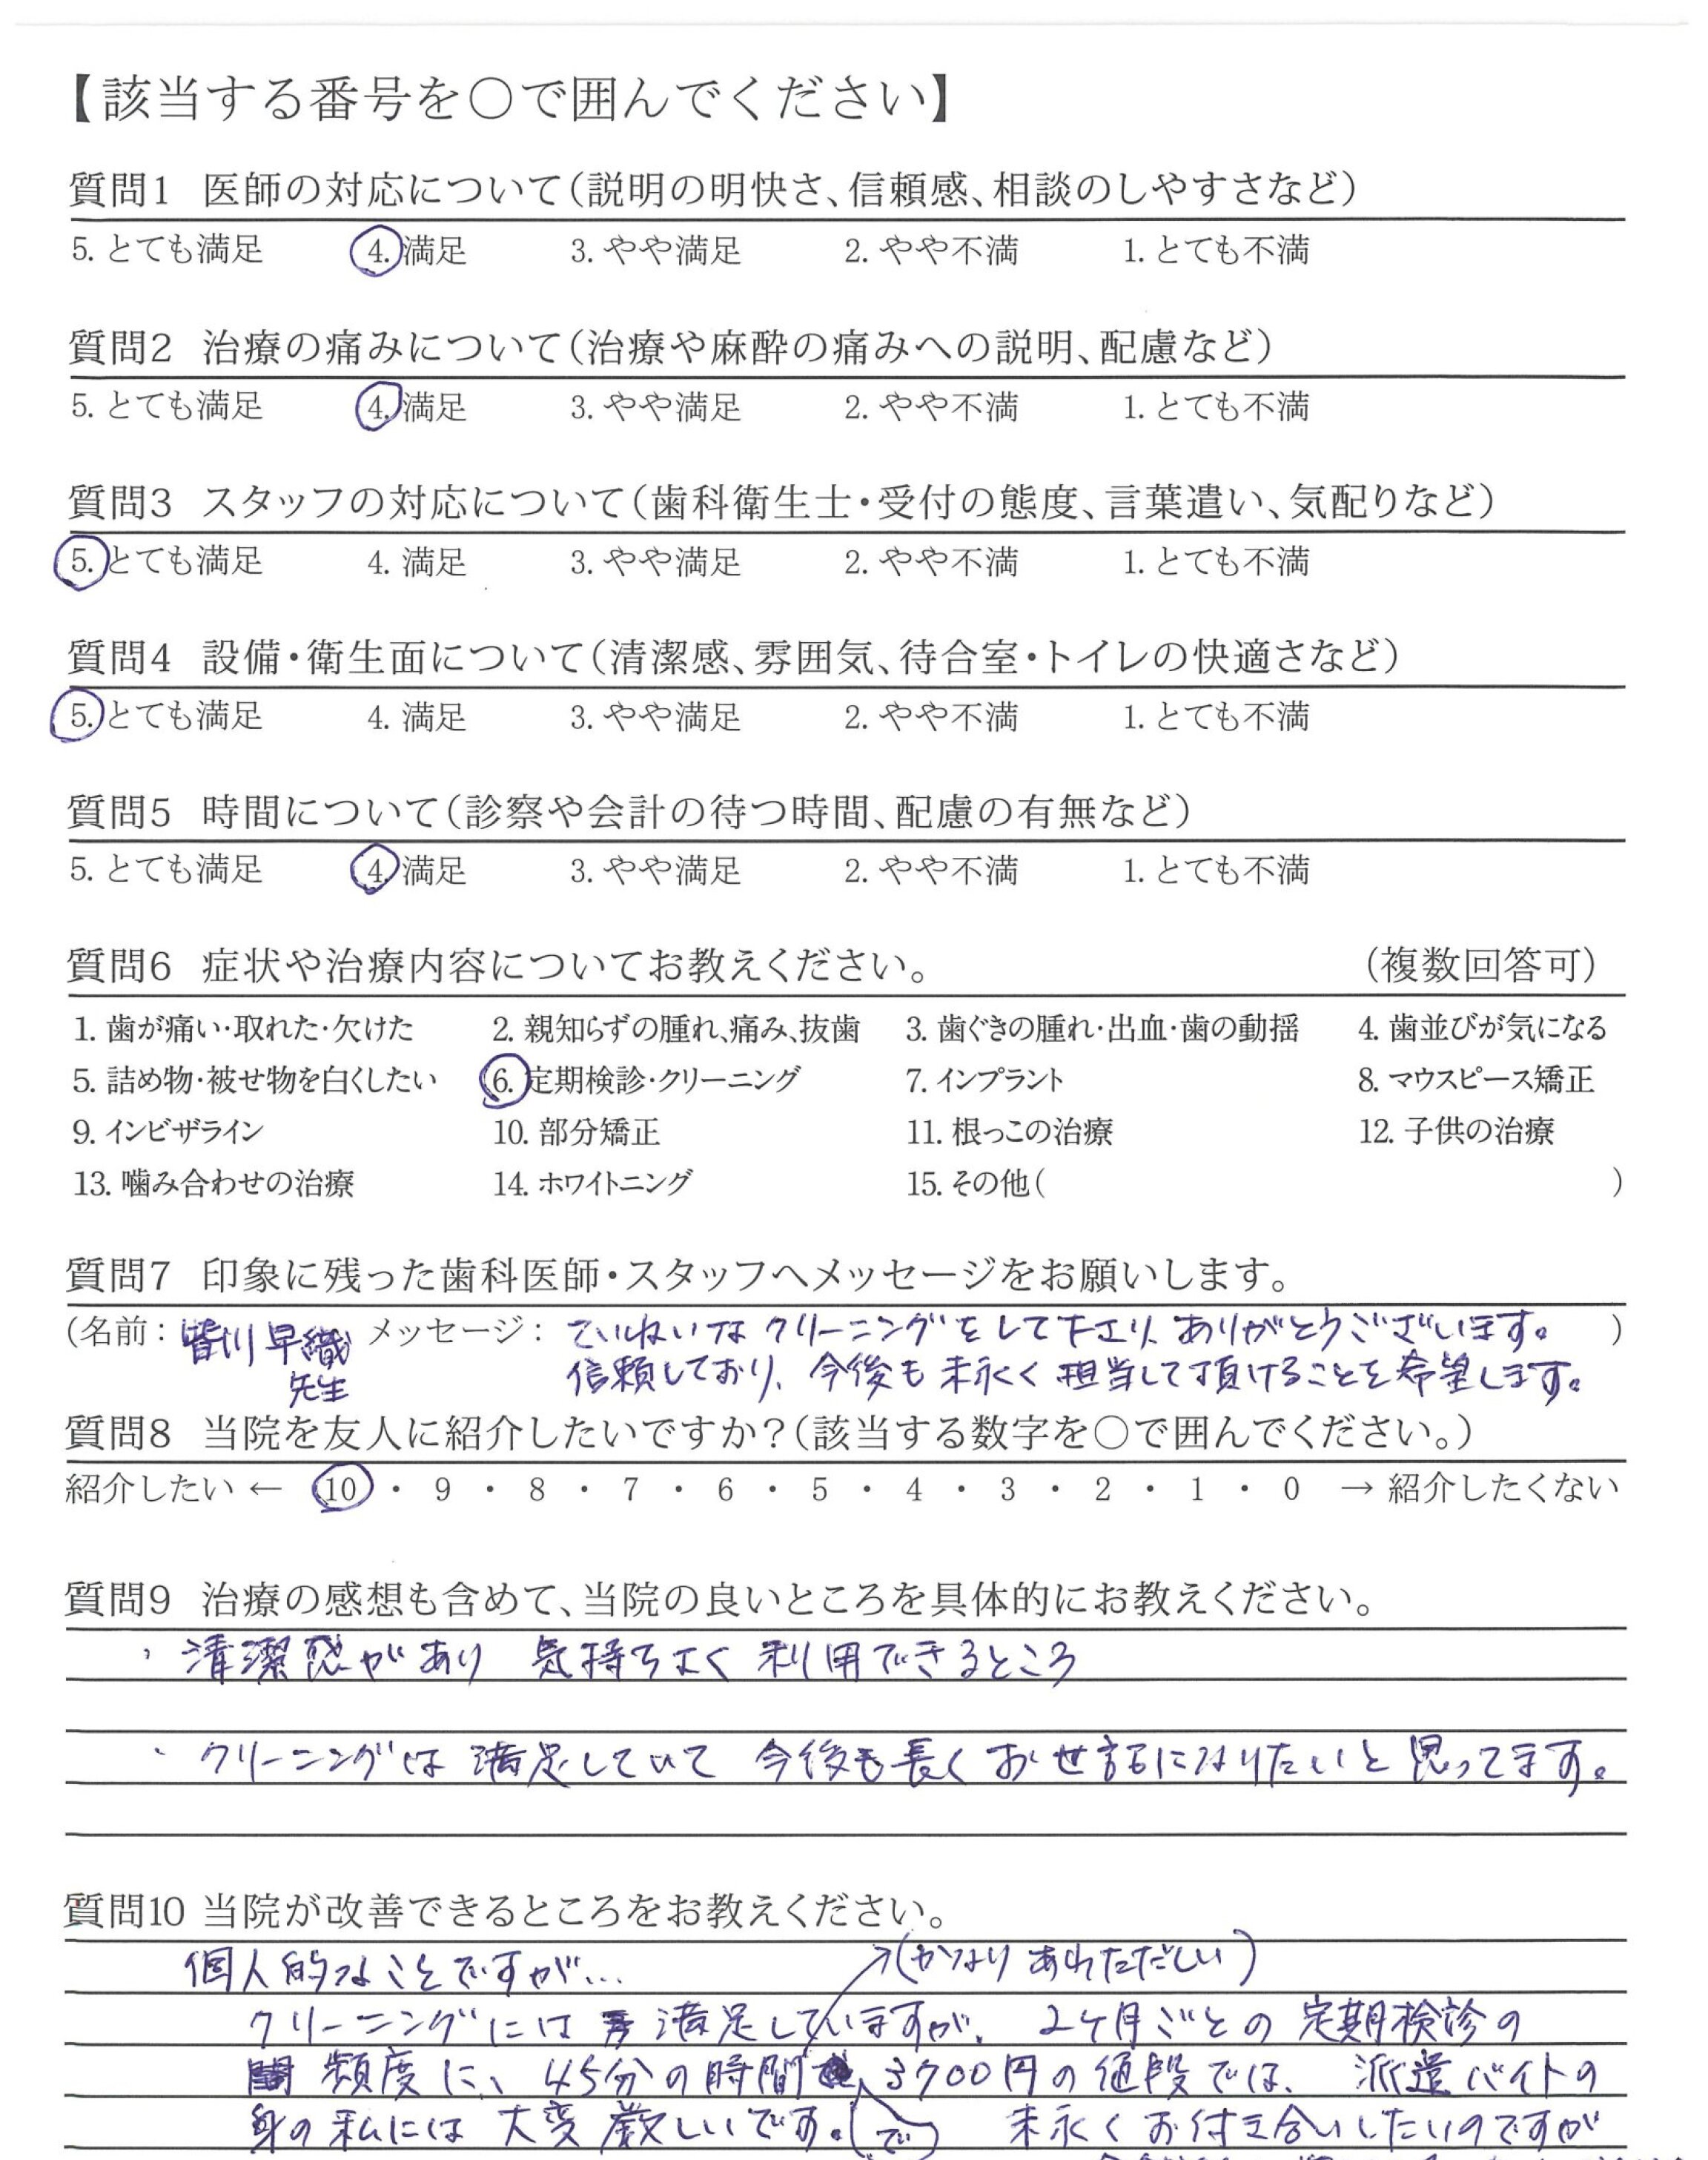 【該当する番号を〇で囲んでください】
質問1 医師の対応について(説明の明快さ、信頼感、相談のしやすさなど)
5. とても満足 4. 満足 3. やや満足 2. やや不満 1. とても不満
質問2 治療の痛みについて(治療や麻酔の痛みへの説明、配慮など)
5. とても満足 4. 満足 3. やや満足 2. やや不満 1. とても不満
質問3 スタッフの対応について(歯科衛生士・受付の態度、言葉遣い、気配りなど)
5. とても満足 4. 満足 3. やや満足 2. やや不満 1. とても不満
質問4 設備・衛生面について(清潔感、雰囲気、待合室・トイレの快適さなど)
5. とても満足 4. 満足 3. やや満足 2. やや不満 1. とても不満
質問5 時間について(診察や会計の待つ時間、配慮の有無など)
5. とても満足 4. 満足 3. やや満足 2. やや不満 1. とても不満
質問6 症状や治療内容についてお教えください。 (複数回答可)
1. 歯が痛い・取れた・欠けた 2. 親知らずの腫れ、痛み、抜歯 3. 歯ぐきの腫れ・出血・歯の動揺 4. 歯並びが気になる
5. 詰め物・被せ物を白くしたい 6. 定期検診・クリーニング 7. インプラント 8. マウスピース矯正
9. インビザライン 10. 部分矯正 11. 根っこの治療 12. 子供の治療
13. 噛み合わせの治療 14. ホワイトニング 15. その他( )
質問7 印象に残った歯科医師・スタッフへメッセージをお願いします。
(名前: 皆川早織 メッセージ: ていねいなクリーニングをして下さり、ありがとうございます。 )
先生 信頼しており、今後も末永く担当して頂けることを希望します。
質問8 当院を友人に紹介したいですか?(該当する数字を〇で囲んでください。)
紹介したい ← 10 ・ 9 ・ 8 ・ 7 ・ 6 ・ 5 ・ 4 ・ 3 ・ 2 ・ 1 ・ 0 → 紹介したくない
質問9 治療の感想も含めて、当院の良いところを具体的にお教えください。
・清潔感があり 気持ちよく利用できるところ
・クリーニングは満足していて 今後も長くお世話になりたいと思ってます。
質問10 当院が改善できるところをお教えください。
個人的なことですが… (かなりあわただしい)
クリーニングには満足していますが、2ヶ月ごとの定期検診の
頻度に、45分の時間 3700円の値段では、派遣バイトの
身の私には大変厳しいです。(で) 末永くお付き合いしたいのですが